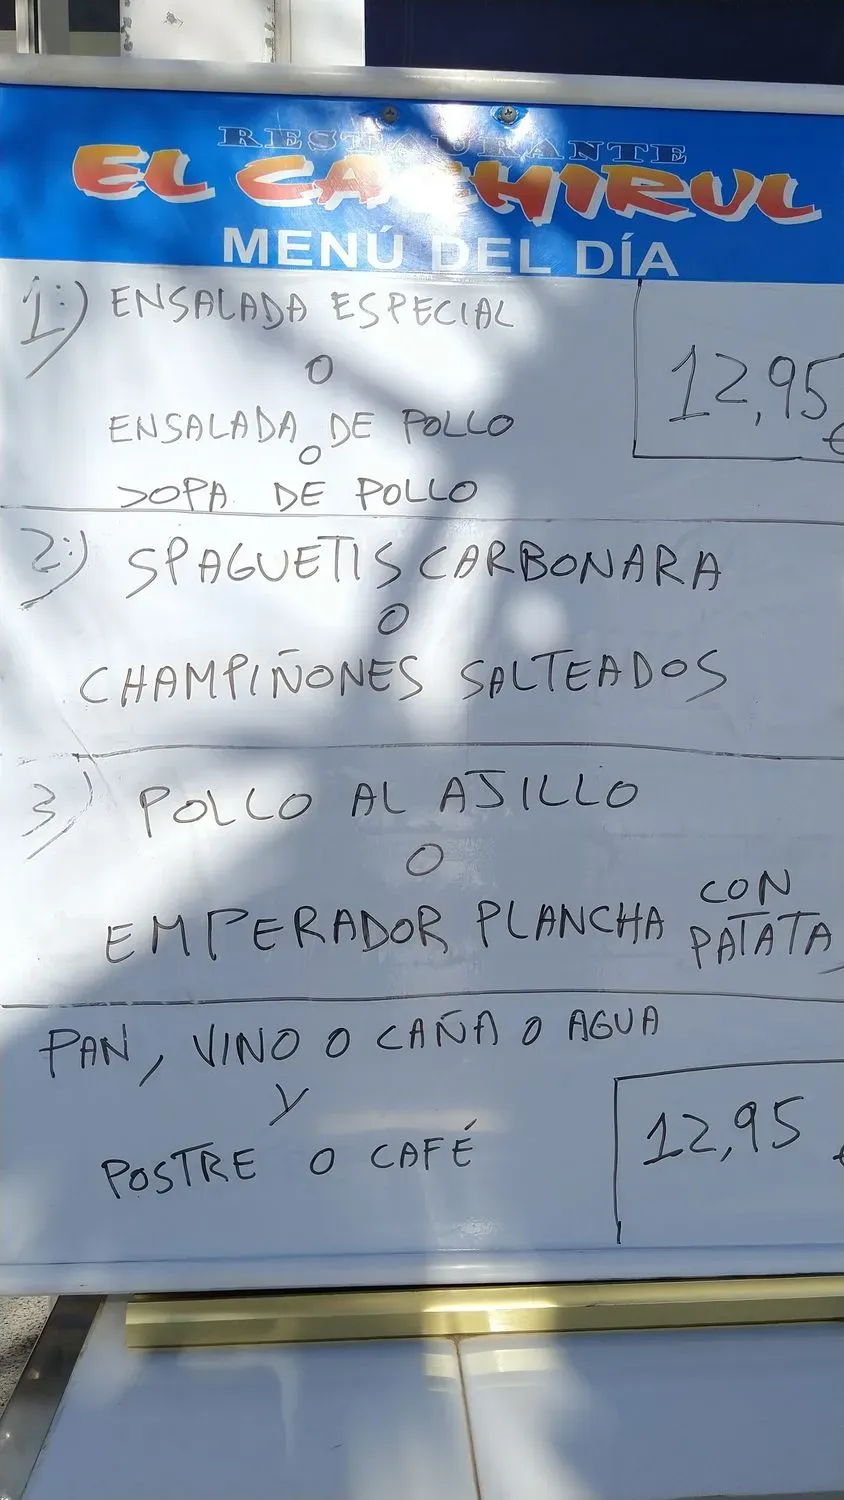 RESTAURANTE
EL CACHIRUL
MENÚ DEL DÍA
1:) ENSALADA ESPECIAL
O
ENSALADA DE POLLO
O
SOPA DE POLLO
12,95
€
2:) SPAGUETIS CARBONARA
O
CHAMPIÑONES SALTEADOS
3) POLLO AL AJILLO
O
EMPERADOR PLANCHA CON
PATATA
PAN, VINO O CAÑA O AGUA
Y
POSTRE O CAFÉ
12,95